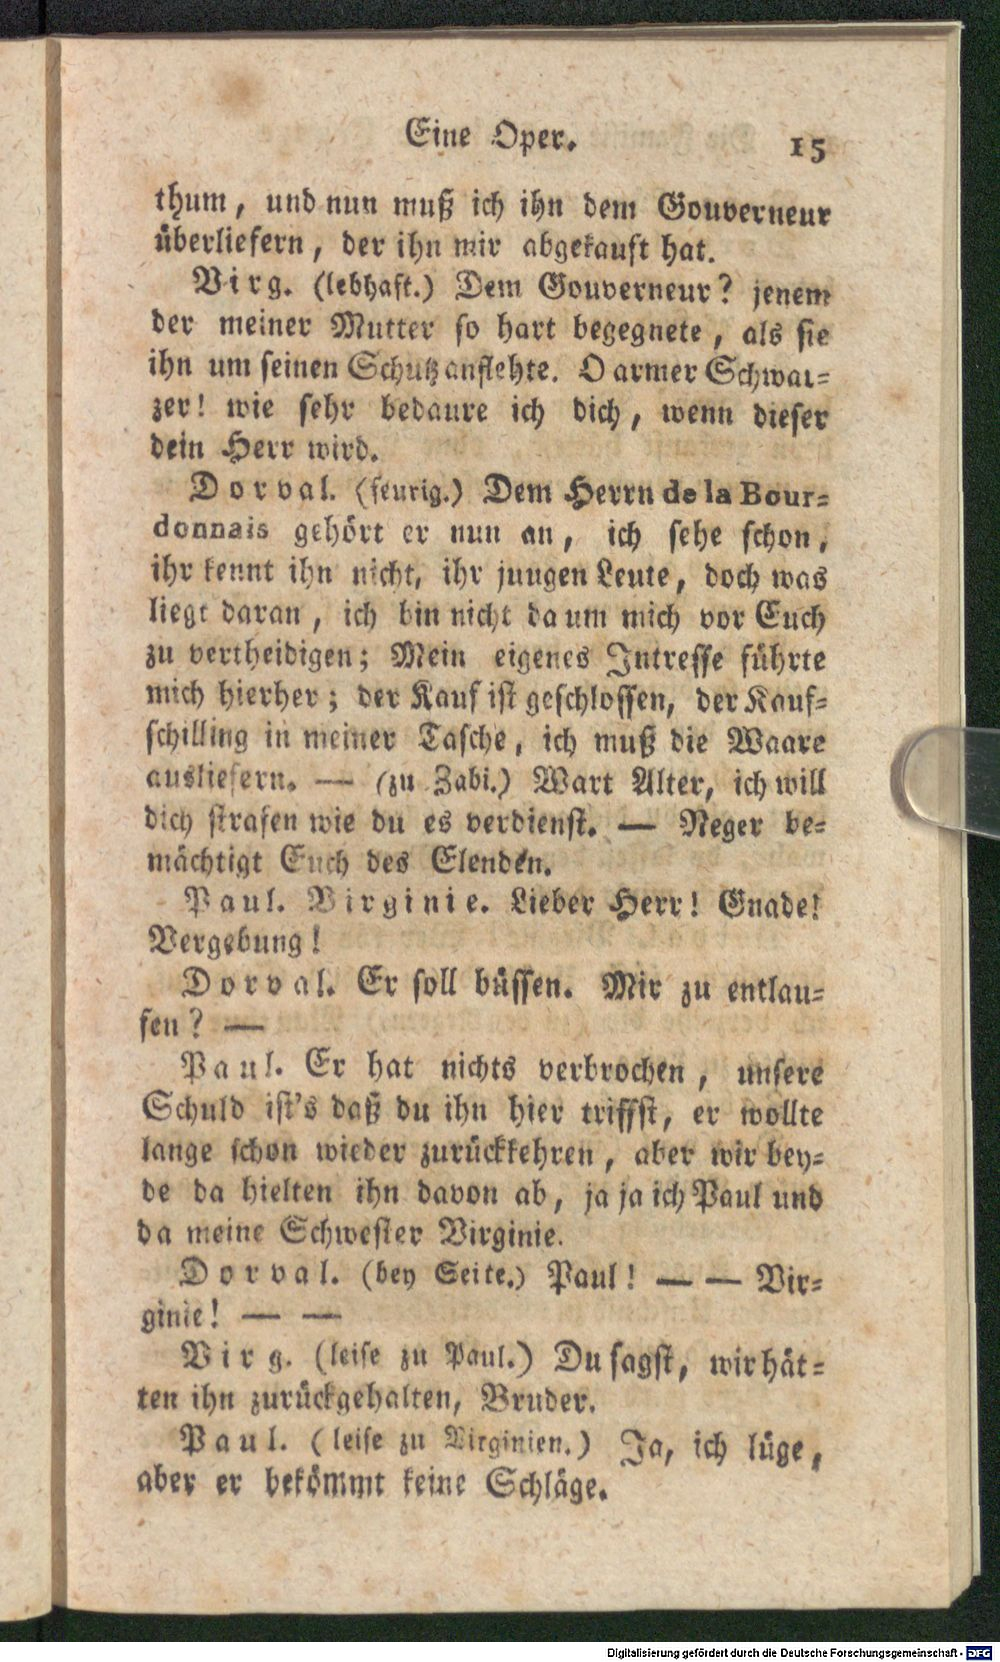 Eine Oper. 15
thum, und nun muß ich ihn dem Gouverneur
überliefern, der ihn mir abgekauft hat.
Virg. (lebhaft.) Dem Gouverneur? jenem
der meiner Mutter so hart begegnete, als sie
ihn um seinen Schutz anflehte. O armer Schwar=
zer! wie sehr bedaure ich dich, wenn dieser
dein Herr wird.
Dorval. (feurig.) Dem Herrn de la Bour=
donnais gehört er nun an, ich sehe schon,
ihr kennt ihn nicht, ihr jungen Leute, doch was
liegt daran, ich bin nicht da um mich vor Euch
zu vertheidigen; Mein eigenes Intresse führte
mich hierher; der Kauf ist geschlossen, der Kauf=
schilling in meiner Tasche, ich muß die Waare
ausliefern. — (zu Zabi.) Wart Alter, ich will
dich strafen wie du es verdienst. — Neger be=
mächtigt Euch des Elenden.
Paul. Virginie. Lieber Herr! Gnade!
Vergebung!
Dorval. Er soll büssen. Mir zu entlau=
fen? —
Paul. Er hat nichts verbrochen, unsere
Schuld ist's daß du ihn hier triffst, er wollte
lange schon wieder zurückkehren, aber wir bey=
de da hielten ihn davon ab, ja ja ich Paul und
da meine Schwester Virginie.
Dorval. (bey Seite.) Paul! — — Vir=
ginie! — —
Virg. (leise zu Paul.) Du sagst, wir hät=
ten ihn zurückgehalten, Bruder.
Paul. (leise zu Virginien.) Ja, ich lüge,
aber er bekömmt keine Schläge.
Digitalisierung gefördert durch die Deutsche Forschungsgemeinschaft - DFG